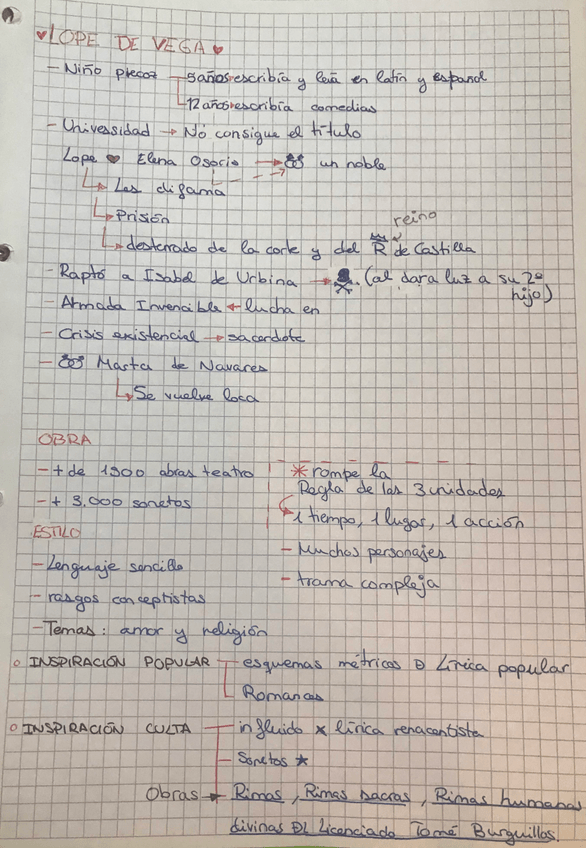 ♥LOPE DE VEGA♥
- Niño precoz → 5 años→escribía y leía en latín y español
→ 12 años→escribía comedias
- Universidad → No consigue el título
Lope ♥ Elena Osorio → un noble
↳ Les difama
↳ Prisión
reino
↳ desterrado de la corte y del R de Castilla
- Raptó a Isabel de Urbina → ☠. (al dar a luz a su 2º hijo)
- Armada Invencible ← lucha en
- Crisis existencial → sacerdote
- Marta de Navares
↳ Se vuelve loca
OBRA
- + de 1500 obras teatro
- + 3.000 sonetos
* rompe la
Regla de las 3 unidades
↳ 1 tiempo, 1 lugar, 1 acción
- Muchos personajes
- trama compleja
ESTILO
- Lenguaje sencillo
- rasgos conceptistas
- Temas: amor y religión
○ INSPIRACIÓN POPULAR - esquemas métricos D Lírica popular
Romances
○ INSPIRACIÓN CULTA - influido x lírica renacentista
- Sonetos ★
Obras → Rimas, Rimas sacras, Rimas humanas
divinas DL Licenciado Tomé Burguillos.